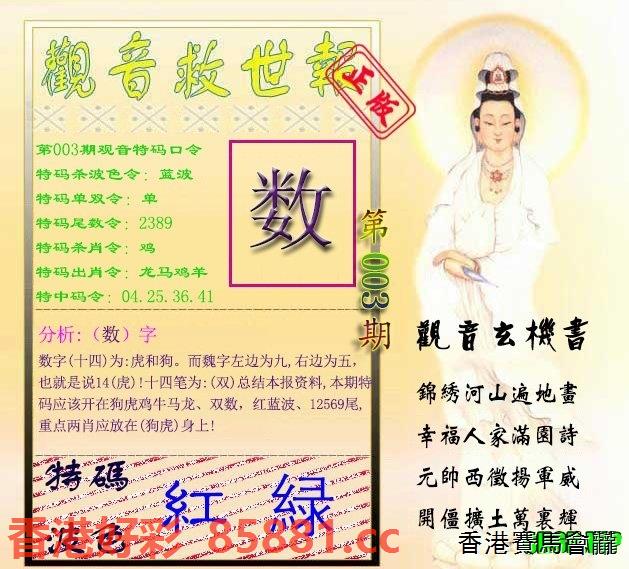 觀音救世報
正版
第003期观音特码口令
特码杀波色令: 蓝波
特码单双令: 单
特码尾数令: 2389
特码杀肖令: 鸡
特码出肖令: 龙马鸡羊
特中码令: 04.25.36.41
数
第003期
分析:（数）字
数字(十四)为:虎和狗。而魏字左边为九,右边为五,
也就是说14(虎)!十四笔为:(双)总结本报资料,本期特
码应该开在狗虎鸡牛马龙、双数, 红蓝波、12569尾,
重点两肖应放在(狗虎)身上!
觀音玄機書
錦綉河山遍地畫
幸福人家滿園詩
元帥西徵揚軍威
開僵擴土萬裏輝
特碼
波色
紅 緑
香港好彩 85881.cc
香港賽馬會